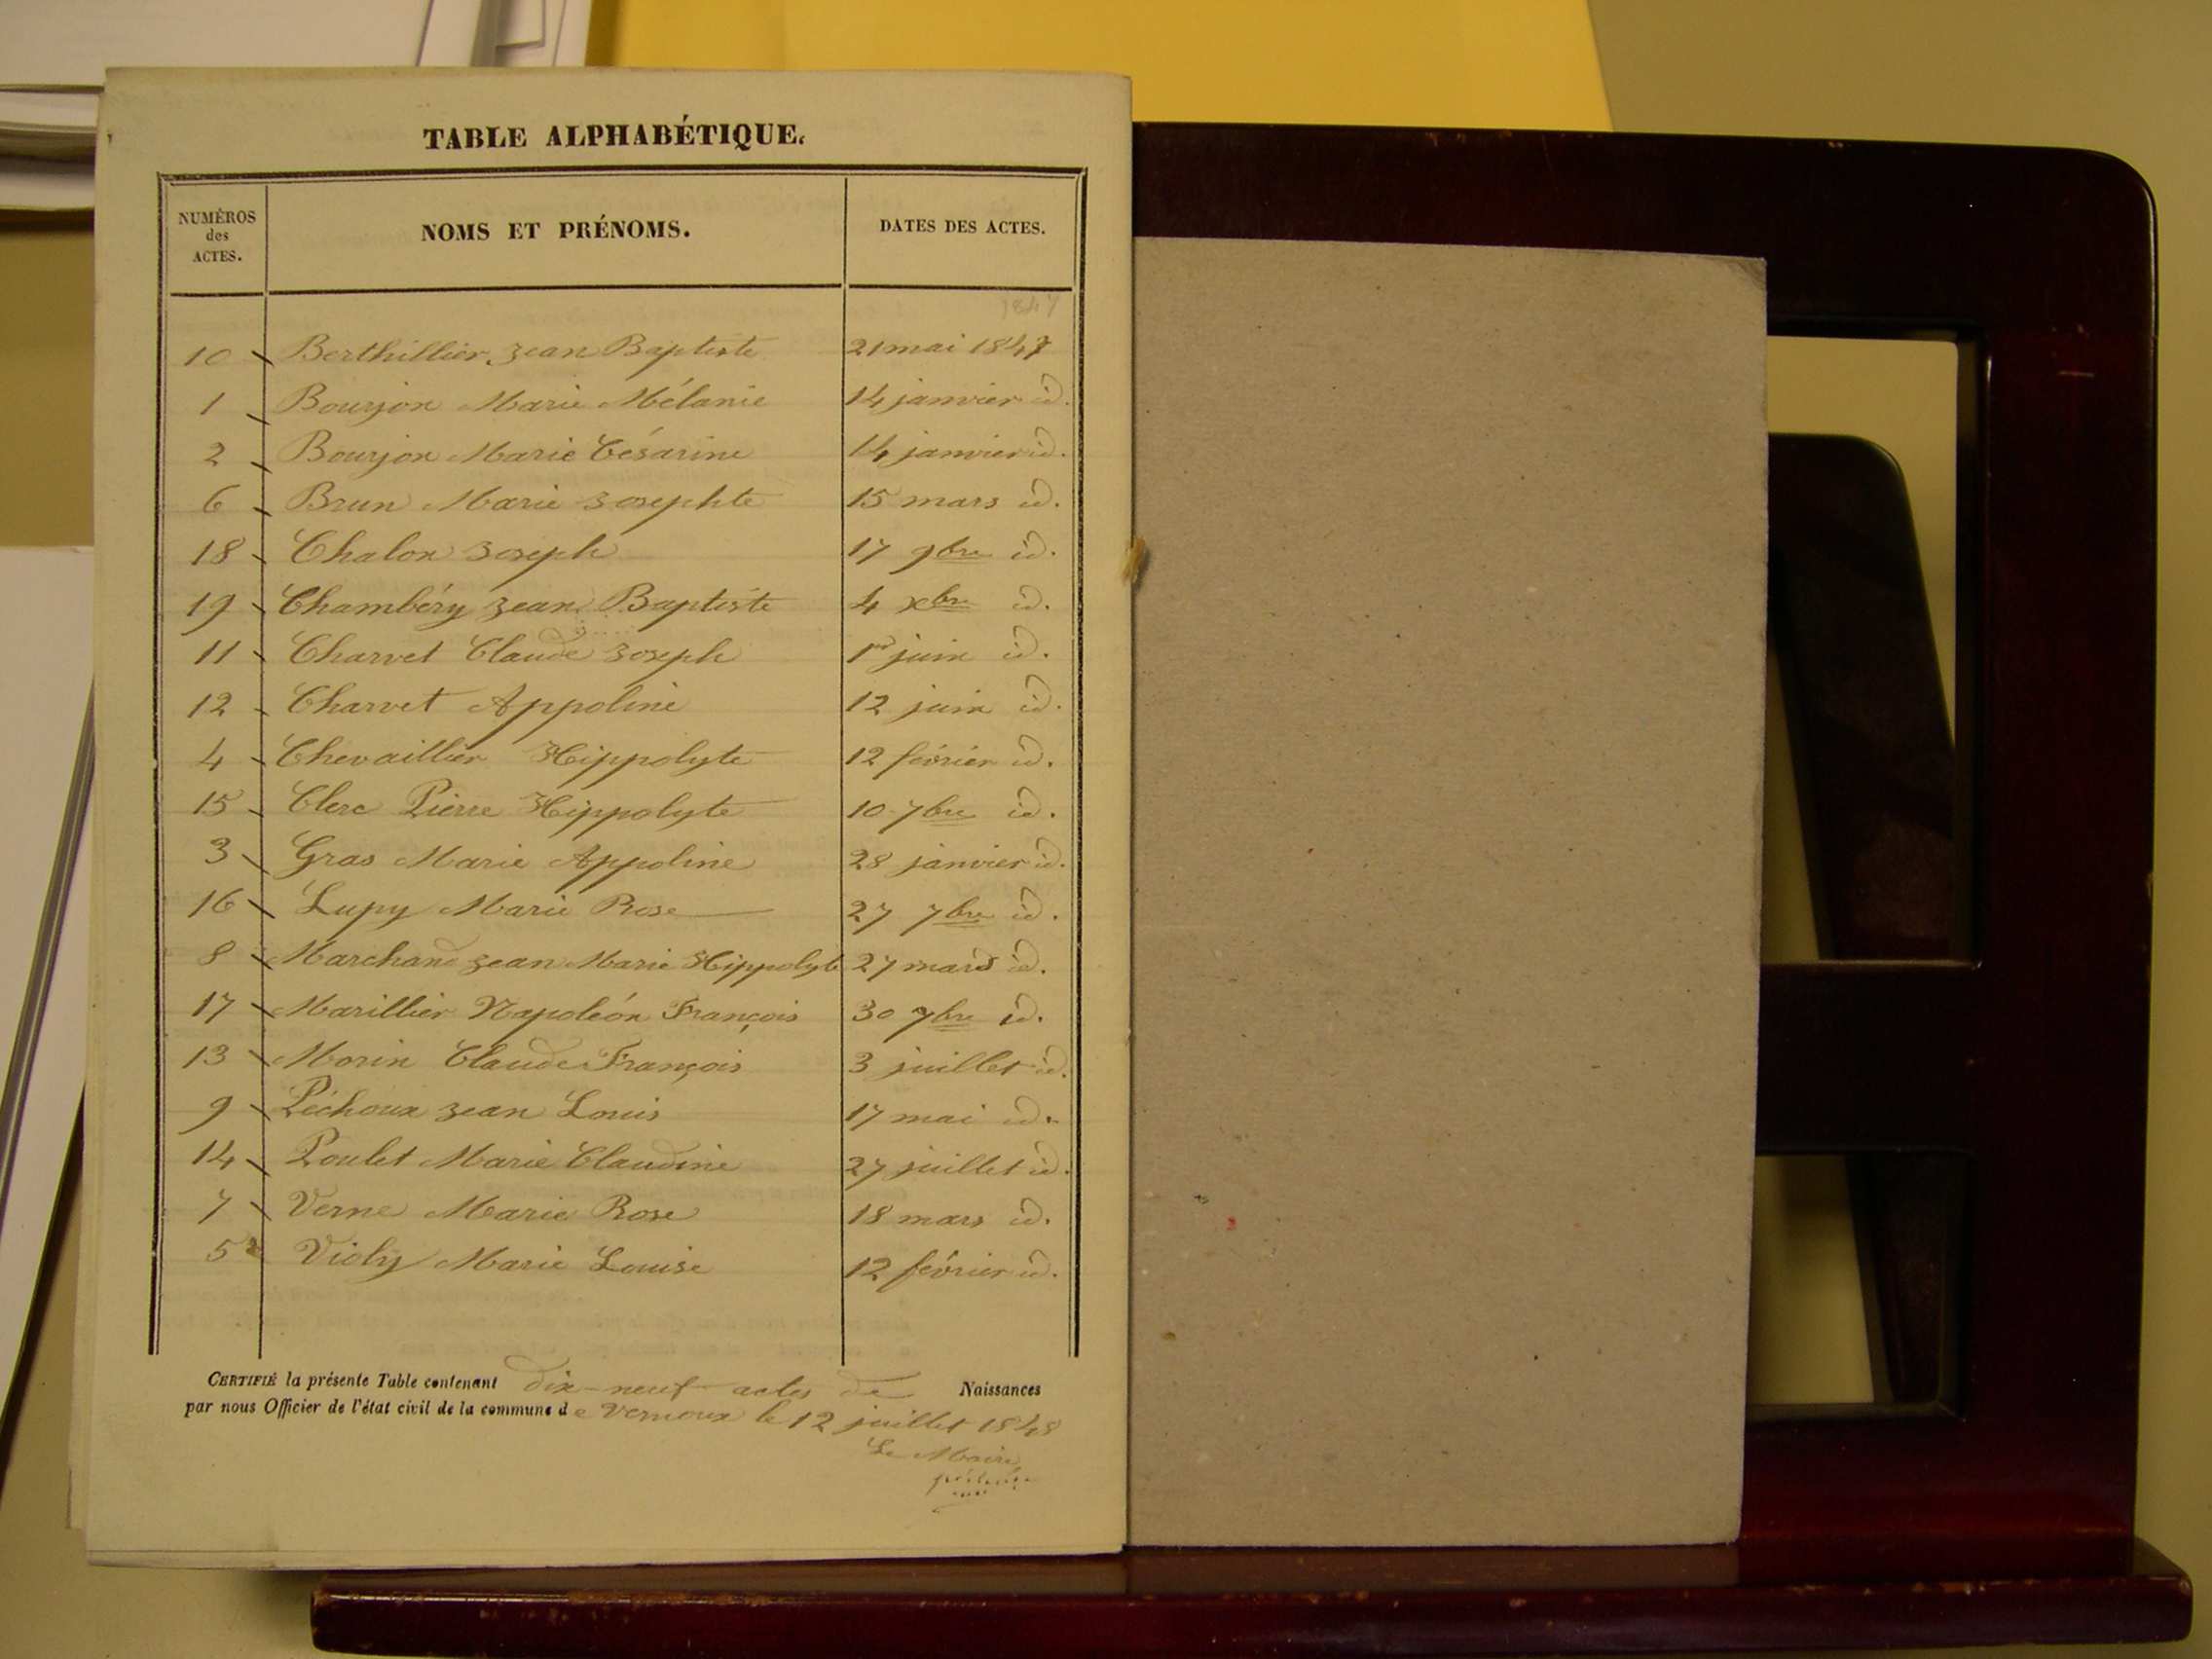 TABLE ALPHABÉTIQUE.
NUMÉROS des ACTES. NOMS ET PRÉNOMS. DATES DES ACTES.
1847
10 Berthillier Jean Baptiste 21 mai 1847
1 Bourjon Marie Mélanie 14 janvier id.
2 Bourjon Marie Césarine 14 janvier id.
6 Brun Marie Josephte 15 mars id.
18 Chalon Joseph 17 9bre id.
19 Chambéry Jean Baptiste 4 xbre id.
11 Charvet Claude Joseph 1er juin id.
12 Charvet Appoline 12 juin id.
4 Chevaillier Hippolyte 12 février id.
15 Clerc Pierre Hippolyte 10 7bre id.
3 Gras Marie Appoline 28 janvier id.
16 Lupy Marie Rose 27 7bre id.
8 Marchand Jean Marie Hippolyte 27 mars id.
17 Marillier Napoléon François 30 7bre id.
13 Morin Claude François 3 juillet id.
9 Péchoux Jean Louis 17 mai id.
14 Poulet Marie Claudine 27 juillet id.
7 Verne Marie Rose 18 mars id.
5 Violy Marie Louise 12 février id.
CERTIFIÉ la présente Table contenant dix-neuf actes de Naissances
par nous Officier de l'état civil de la commune de Vernoux le 12 juillet 1848
Le Maire